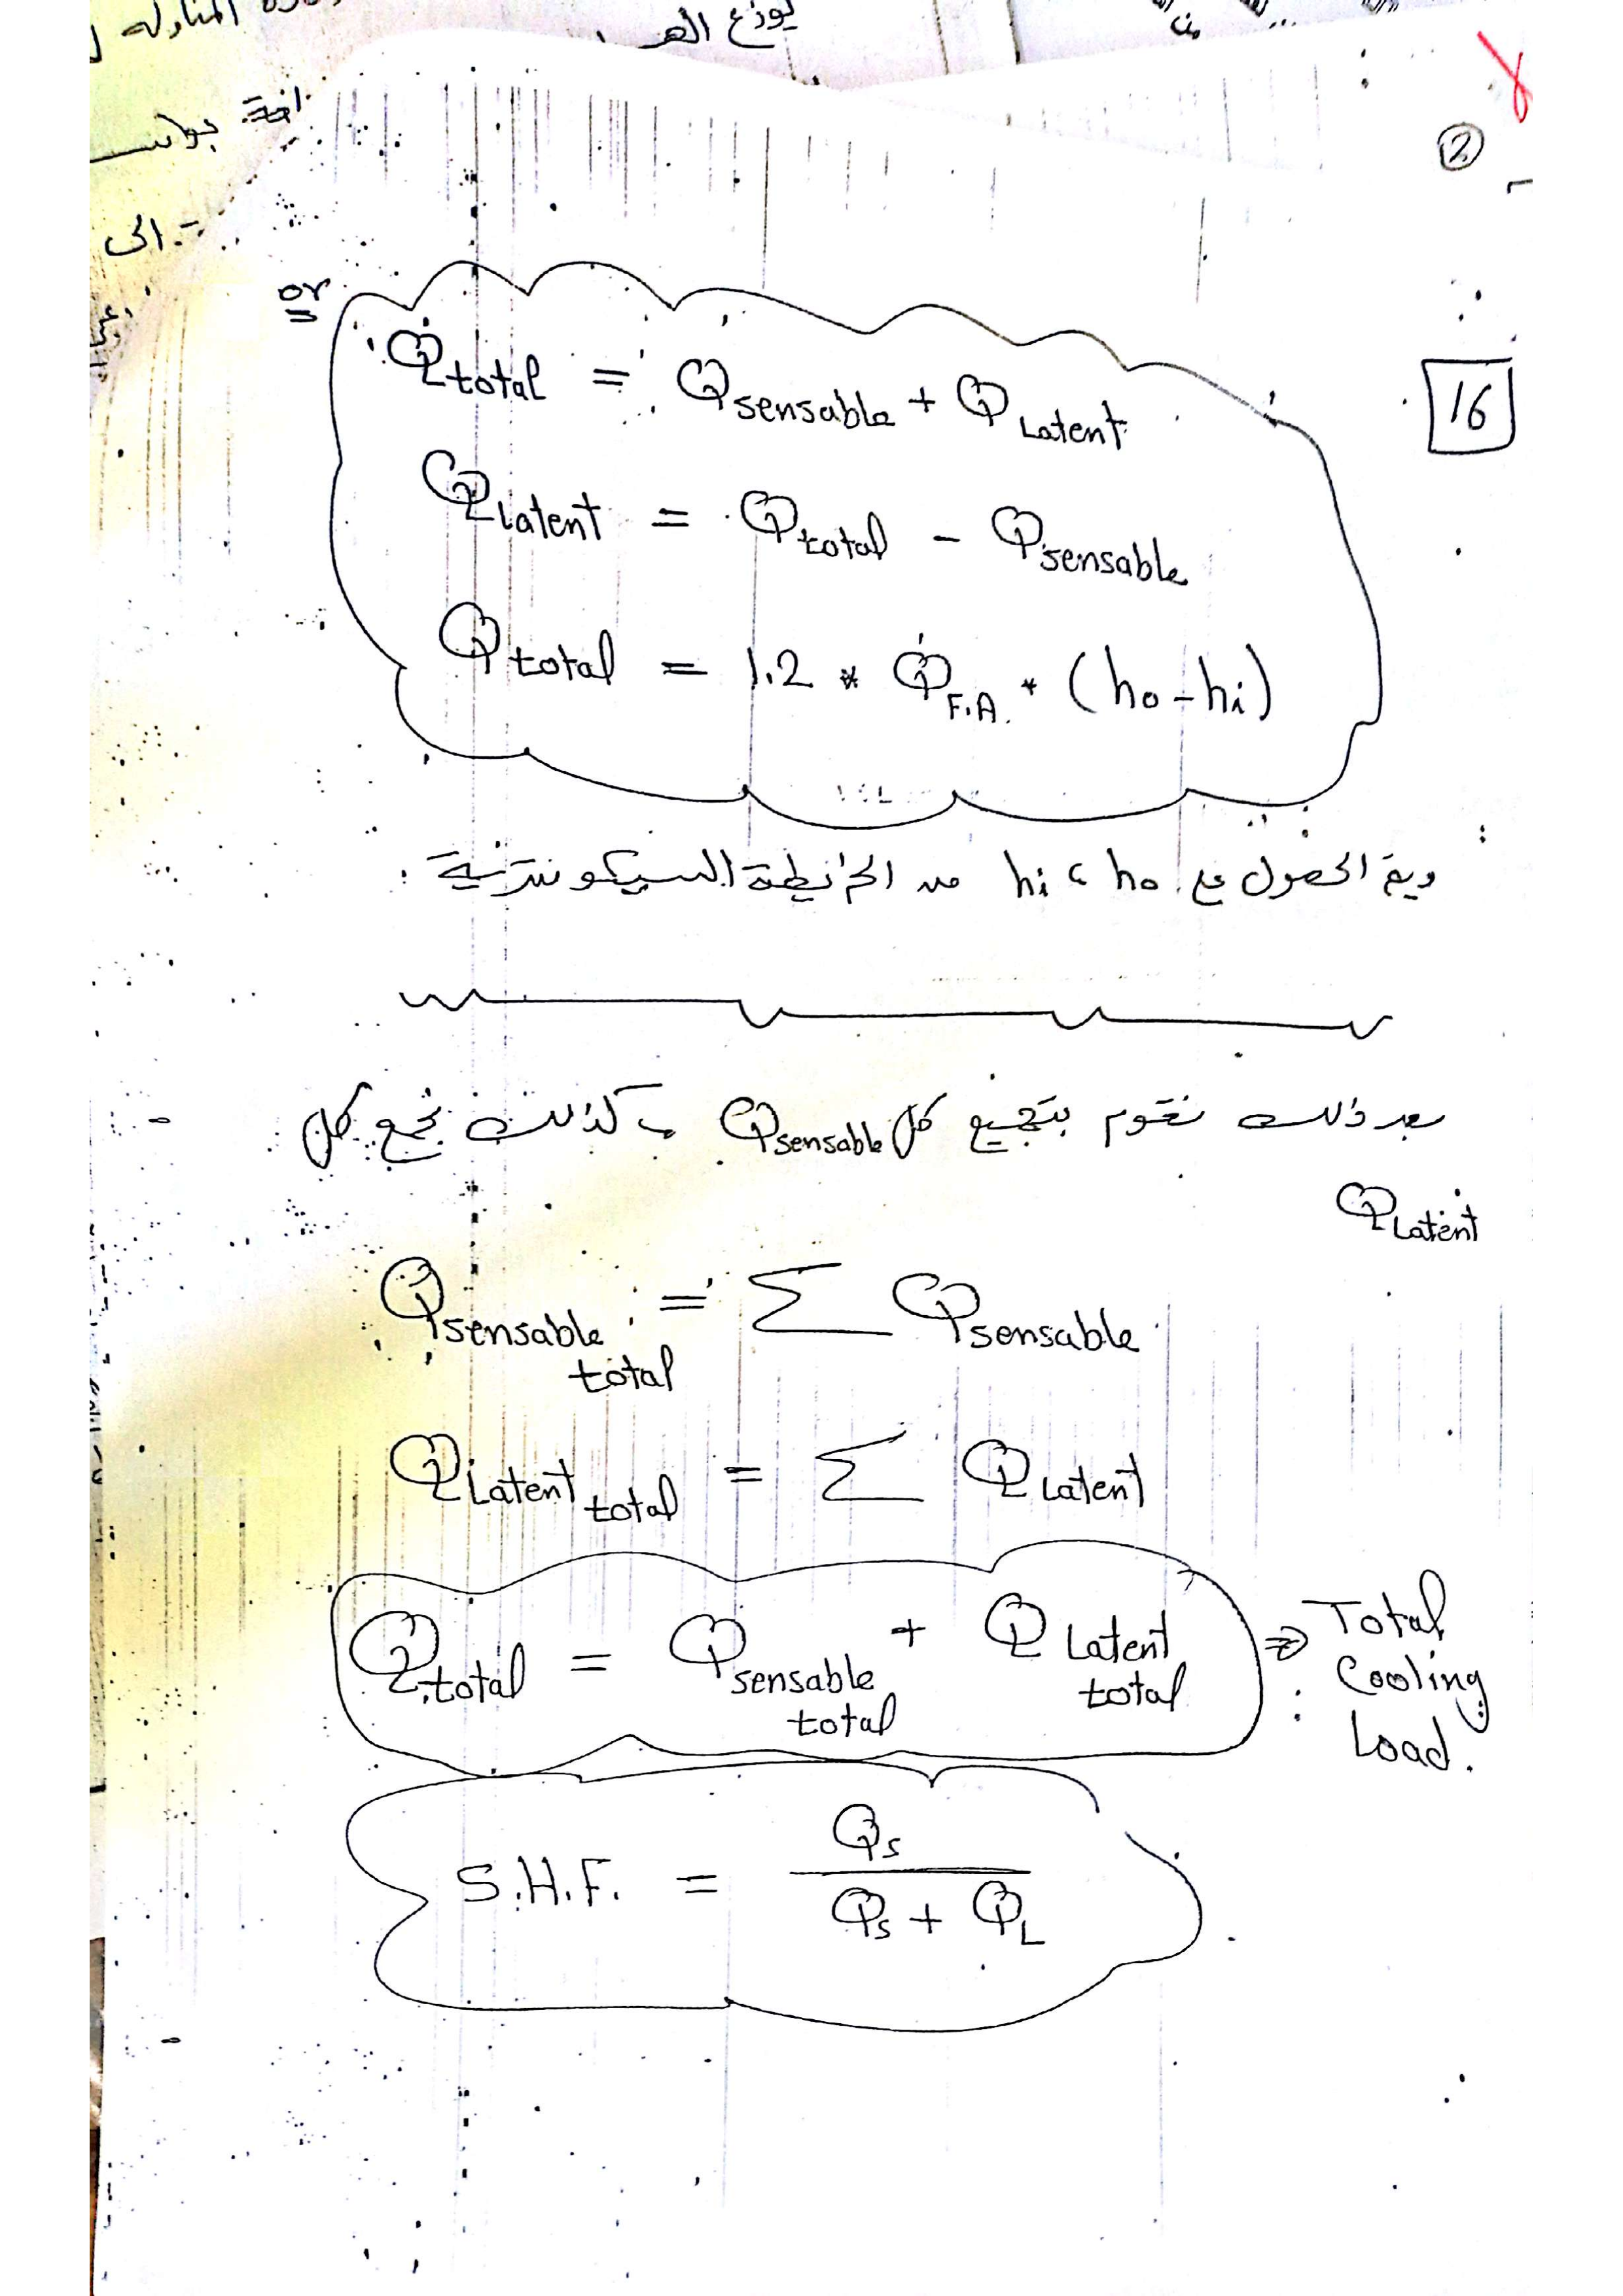 المناوله
يوزع الهو
من
جوانب
الى
②
16
or
Q̇total = Qsensable + QLatent
QLatent = Qtotal - Qsensable
Qtotal = 1.2 * Q̇F.A. * (ho - hi)
ويتم الحصول على ho ، hi من الخريطة السيكومترية .
بعد ذلك نقوم بتجميع كل Qsensable وكذلك نجمع كل
QLatent
Qsensable total = Σ Qsensable
QLatent total = Σ QLatent
Qtotal = Qsensable total + QLatent total ⇒ Total Cooling Load.
S.H.F. = Qs / (Qs + QL)